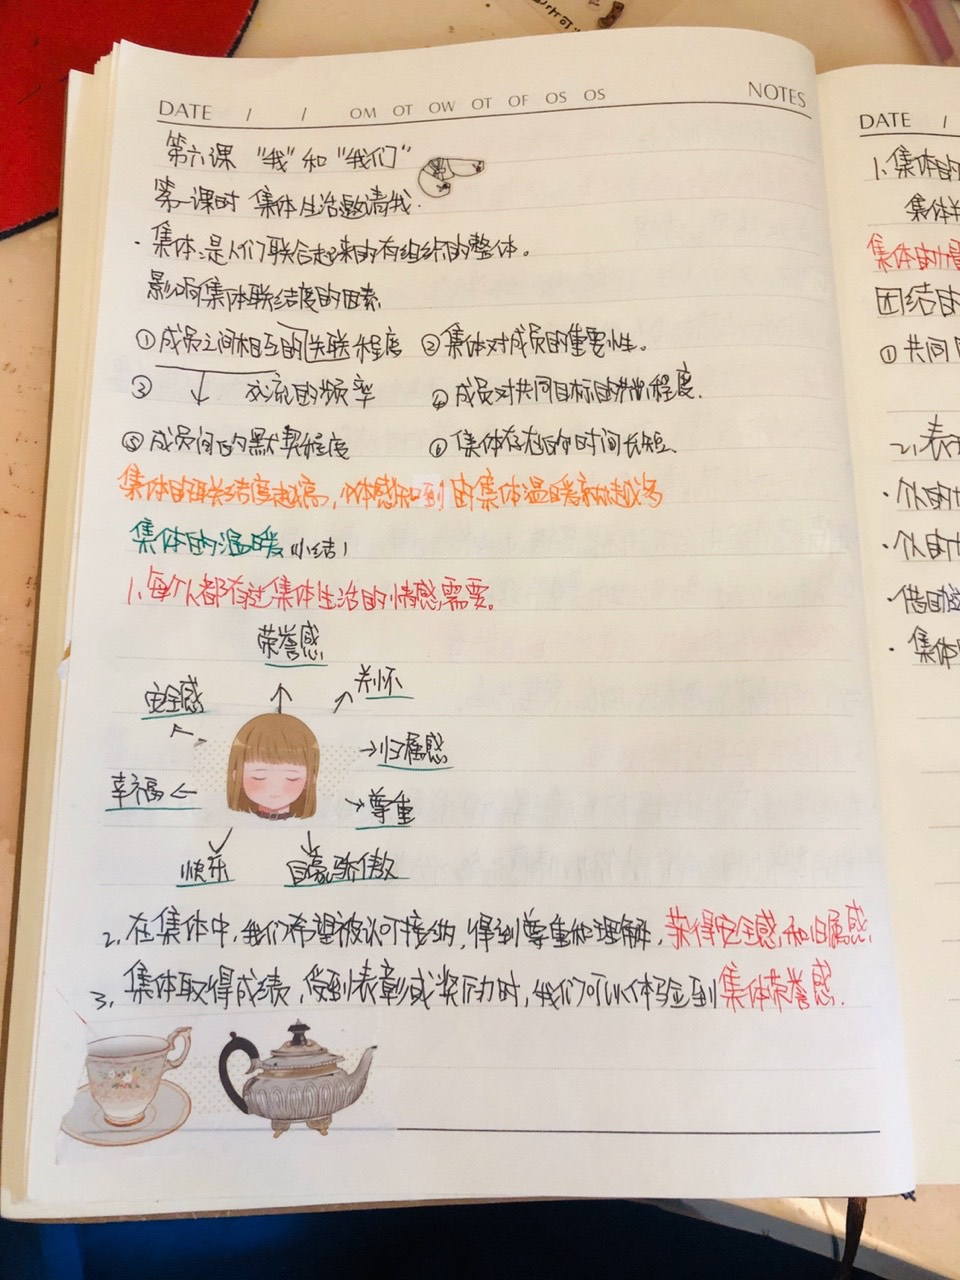 DATE / / OM OT OW OT OF OS OS NOTES
第六课 "我"和"我们"
第一课时 集体生活邀请我.
·集体:是人们联合起来的有组织的整体。
影响集体联结度的因素
①成员之间相互的关联程度 ②集体对成员的重要性。
③ ↓ 交流的频率 ④成员对共同目标的 程度.
⑤成员间的默契程度 ⑥集体存在的时间长短.
集体的联结度越高,个体感知到的集体温暖就越多
集体的温暖 小结1
1、每个人都有过集体生活的情感需要。
荣誉感
安全感 关怀
归属感
幸福 尊重
快乐 自豪骄傲
2.在集体中,我们希望被认可接纳,得到尊重和理解,获得安全感和归属感.
3.集体取得成绩,受到表彰或奖励时,我们可以体验到集体荣誉感.
DATE /
1.集体的
集体
集体的力量
团结的
①共同
2.表
·个人的
·个人的
·借助
·集体